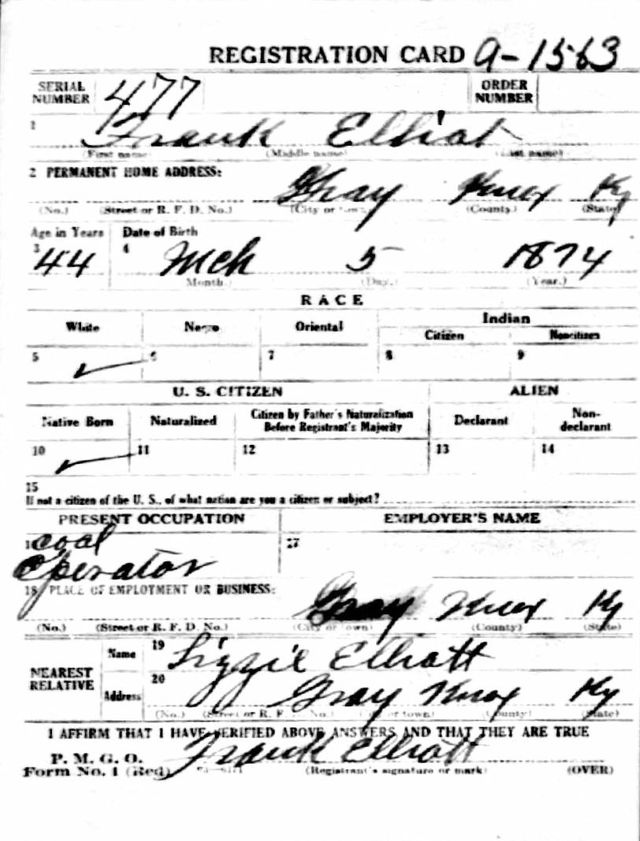 REGISTRATION CARD A-1563
SERIAL NUMBER 477 ORDER NUMBER
1 Frank Elliot
(First name) (Middle name) (Last name)
2 PERMANENT HOME ADDRESS:
Gray Knox Ky
(No.) (Street or R. F. D. No.) (City or town) (County) (State)
Age in Years Date of Birth
3 44 4 Mch 5 1874
(Month.) (Day.) (Year.)
RACE
White Negro Oriental Indian
Citizen Noncitizen
5 ✓ 6 7 8 9
U. S. CITIZEN ALIEN
Native Born Naturalized Citizen by Father's Naturalization Before Registrant's Majority Declarant Non-declarant
10 ✓ 11 12 13 14
15
If not a citizen of the U. S., of what nation are you a citizen or subject?
PRESENT OCCUPATION EMPLOYER'S NAME
16 coal 17
Operator
18 PLACE OF EMPLOYMENT OR BUSINESS:
Gray Knox Ky
(No.) (Street or R. F. D. No.) (City or town) (County) (State)
NEAREST RELATIVE
Name 19 Lizzie Elliott
Address 20 Gray Knox Ky
(No.) (Street or R. F. D. No.) (City or town) (County) (State)
I AFFIRM THAT I HAVE VERIFIED ABOVE ANSWERS AND THAT THEY ARE TRUE
P. M. G. O.
Form No. 1 (Red) Frank Elliott
(Registrant's signature or mark) (OVER)